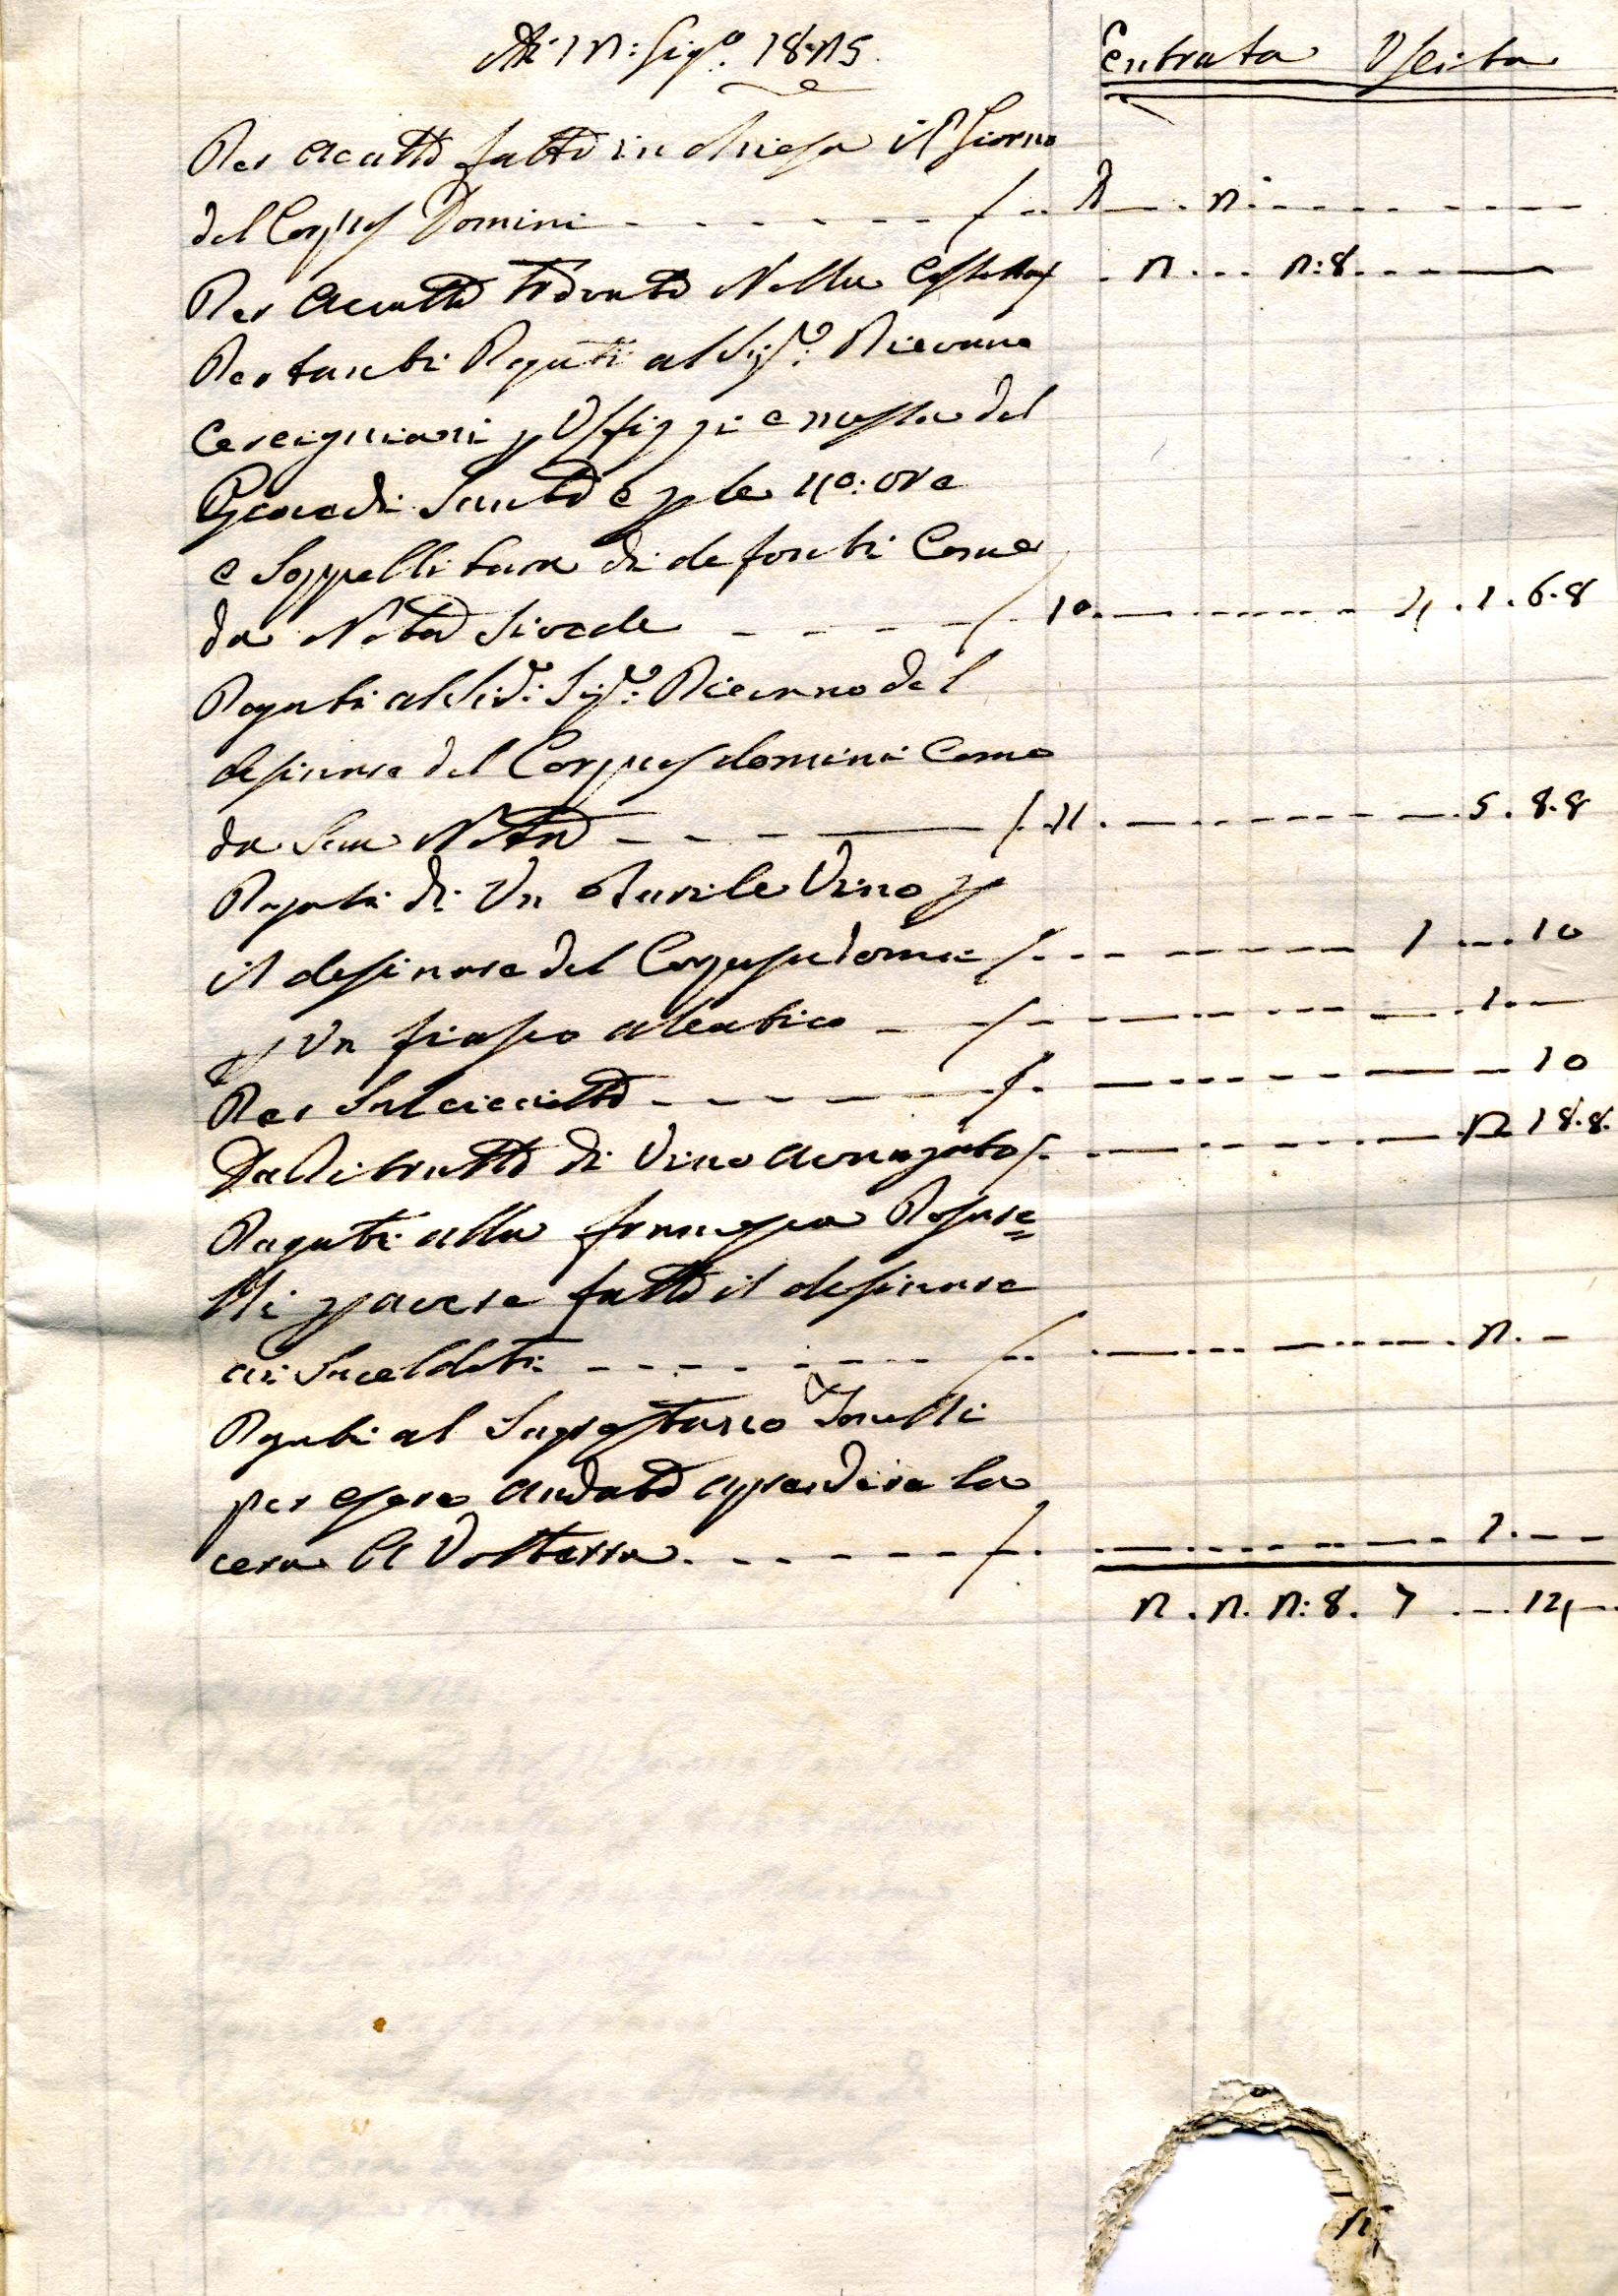 Adì 12: Giug.o 1825 Entrata Uscita
Per Acatto fatto in chiesa il Giorno
del Corpus Domini - - - - - - / - - 2 - - 2 - - - -
Per Acatto trovato Nella Cassetta / . 2 . . . 2:8 - - -
Per tanti Pagati al Sig.e Pievano
Cereigniani p Uffizzi e messa del
Giovedi Santo e p le 40: ore
e Soppellitura di defonti Come
da Nota Sivede - - - - / . 10. - - - - 4 . 1 . 6 . 8
Pagati al Sud.o Sig.e Pievano del
desinare del Corpus domini Come
da Sua Nota - - - - / . 11 . - - - - 5 . 8 . 8
Pagati di Un Barile Vino p
il desinare del Corpusdomini / - - - - 1 - - 10
p Un fiasco aleatico - - / - - - - 1 . -
Per Salcicciotto - - - - / . - - - - 10
Da Ritratto di Vino avanzato / . - - - - 2 18 . 8 .
Pagati alla francesca Rosase=
lli p avere fatto il desinare
ai Saceldoti - - - - / - - - - 2 . -
Pagati al Sagrestano Tonelli
per esere andato aprendere la
cera A Volterra . - - - - / - . - - - - 1 . - -
2 . 2 . 2 : 8 . 7 . - - 14 -